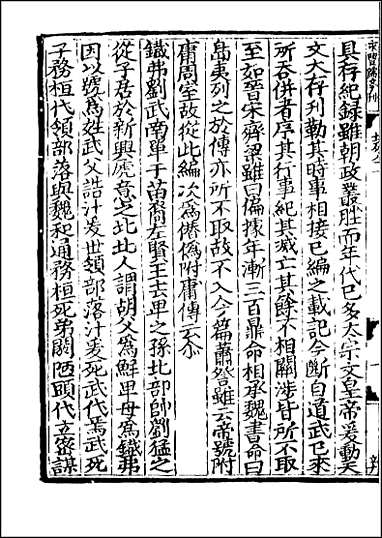 具存紀錄雖朝政叢脞而年代已多太宗文皇帝爰動天
文大存刊勒其時事相接已編之載記今斷自道武已來
所吞併者序其行事紀其滅亡其餘不相關涉皆所不取
至如晉宋齊梁雖曰偏據年漸三百鼎命相承魏書命曰
島夷列之於傳亦所不取故不入今篇蕭詧雖云帝號附
庸周室故從此編次為僭偽附庸傳云尒
鐵弗劉武南單于苗裔左賢王去卑之孫北部帥劉猛之
從子居於新興虎意之北北人謂胡父為鮮卑母為鐵弗
因以號為姓武父誥汁爰世領部落汁爰死武代焉武死
子務桓代領部落與魏和通務桓死弟閼陋頭代立密謀